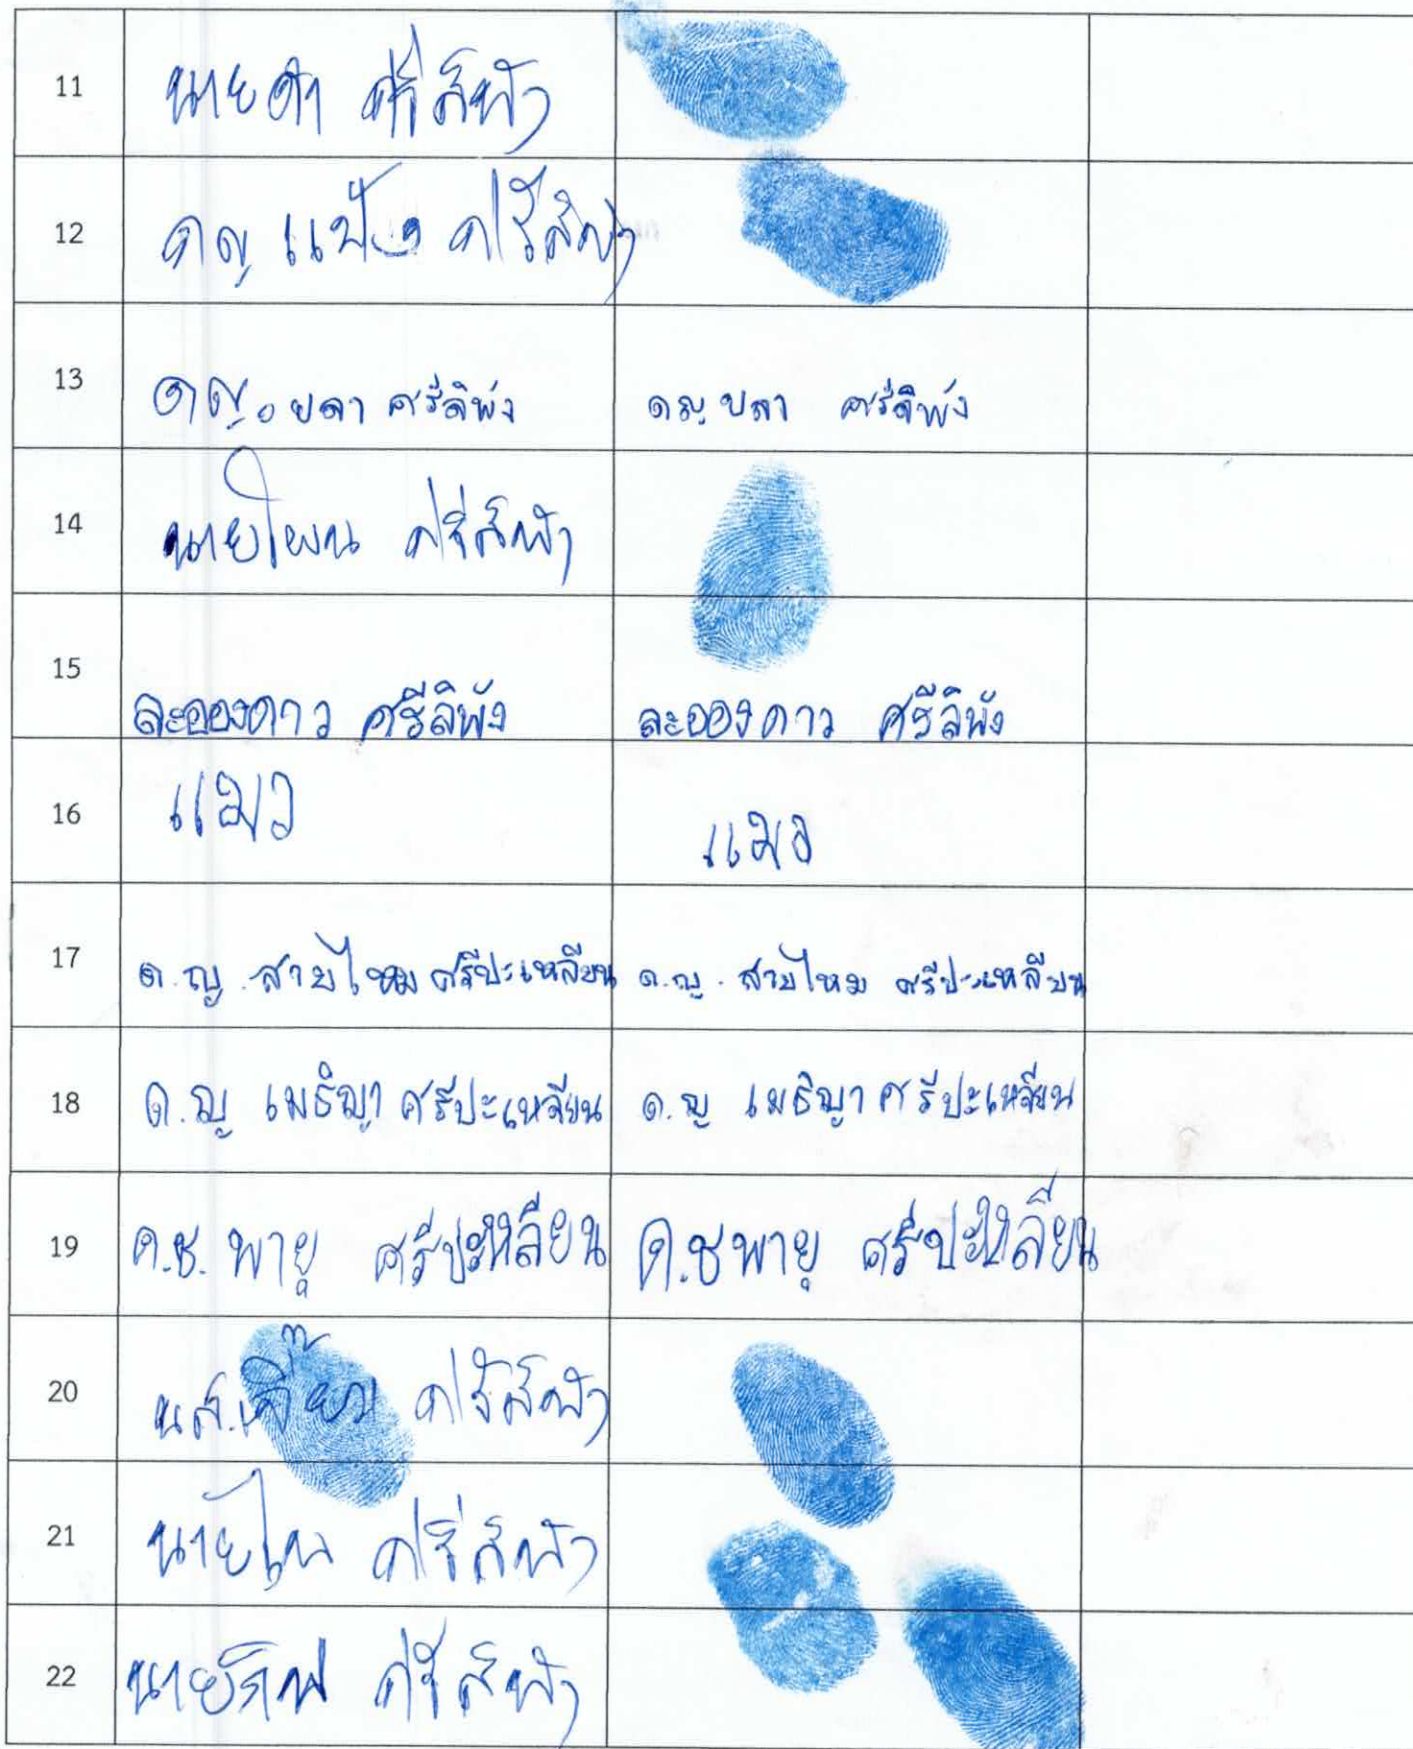 11 นายดำ ศรีลิพัง
12 ดญ. แป้ง ศรีลิพัง
13 ดญ. ยลา ศรีลิพัง ดญ. ยลา ศรีลิพัง
14 นายโผน ศรีลิพัง
15 ละอองดาว ศรีลิพัง ละอองดาว ศรีลิพัง
16 แมว แมว
17 ด.ญ. สายไหม ศรีปะเหลียน ด.ญ. สายไหม ศรีปะเหลียน
18 ด.ญ เมธิญา ศรีปะเหลียน ด.ญ เมธิญา ศรีปะเหลียน
19 ด.ช. พายุ ศรีปะหลียน ด.ช พายุ ศรีปะหลียน
20 นส. ศรีลิพัง
21 ศรีลิพัง
22 ศรีลิพัง